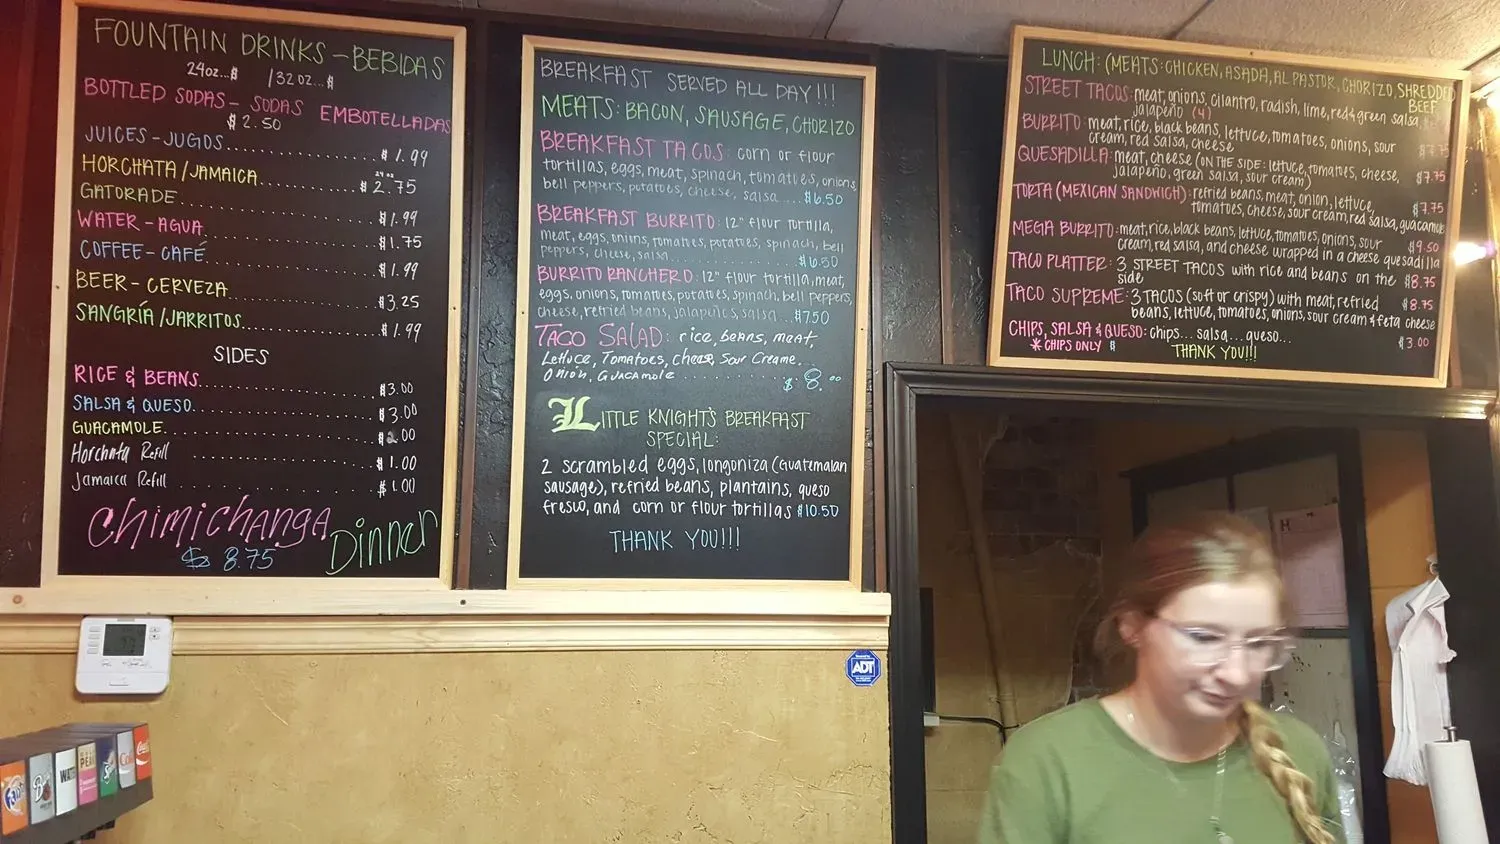 FOUNTAIN DRINKS - BEBIDAS
24oz...$ /32oz...$
BOTTLED SODAS - SODAS EMBOTELLADAS
$2.50
JUICES - JUGOS....$1.99
HORCHATA/JAMAICA....24oz $2.75
GATORADE....$1.99
WATER - AGUA....$1.75
COFFEE - CAFÉ....$1.99
BEER - CERVEZA....$3.25
SANGRÍA/JARRITOS....$1.99
SIDES
RICE & BEANS....$3.00
SALSA & QUESO....$3.00
GUACAMOLE....$ .00
Horchata Refill ....$1.00
Jamaica Refill ....$1.00
Chimichanga Dinner
$ 8.75
BREAKFAST SERVED ALL DAY!!!
MEATS: BACON, SAUSAGE, CHORIZO
BREAKFAST TACOS: corn or flour
tortillas, eggs, meat, spinach, tomatoes, onions,
bell peppers, potatoes, cheese, salsa ....$6.50
BREAKFAST BURRITO: 12" flour tortilla,
meat, eggs, onions, tomatoes, potatoes, spinach, bell
peppers, cheese, salsa....$6.50
BURRITO RANCHERO: 12" flour tortilla, meat,
eggs, onions, tomatoes, potatoes, spinach, bell peppers,
cheese, refried beans, jalapeños, salsa ...$7.50
TACO SALAD: rice, beans, meat,
Lettuce, Tomatoes, cheese, Sour Creame,
Onion, Guacamole ....$8.00
LITTLE KNIGHT'S BREAKFAST
SPECIAL:
2 scrambled eggs, longoniza (Guatemalan
sausage), refried beans, plantains, queso
fresco, and corn or flour tortillas $10.50
THANK YOU!!!
LUNCH: (MEATS: CHICKEN, ASADA, AL PASTOR, CHORIZO, SHREDDED
BEEF
STREET TACOS: meat, onions, cilantro, radish, lime, red & green salsa,
jalapeño (4)
BURRITO: meat, rice, black beans, lettuce, tomatoes, onions, sour
cream, red salsa, cheese $7.75
QUESADILLA: meat, cheese (ON THE SIDE: lettuce, tomatoes, cheese,
jalapeño, green salsa, sour cream) $7.75
TORTA (MEXICAN SANDWICH): refried beans, meat, onion, lettuce, $7.75
tomatoes, cheese, sour cream, red salsa, guacamole
MEGA BURRITO: meat, rice, black beans, lettuce, tomatoes, onions, sour $9.50
cream, red salsa, and cheese wrapped in a cheese quesadilla
TACO PLATTER: 3 STREET TACOS with rice and beans on the $8.75
side
TACO SUPREME: 3 TACOS (soft or crispy) with meat, refried $8.75
beans, lettuce, tomatoes, onions, sour cream & feta cheese
CHIPS, SALSA & QUESO: chips... salsa... queso... $3.00
*CHIPS ONLY $
THANK YOU!!!
ADT
H